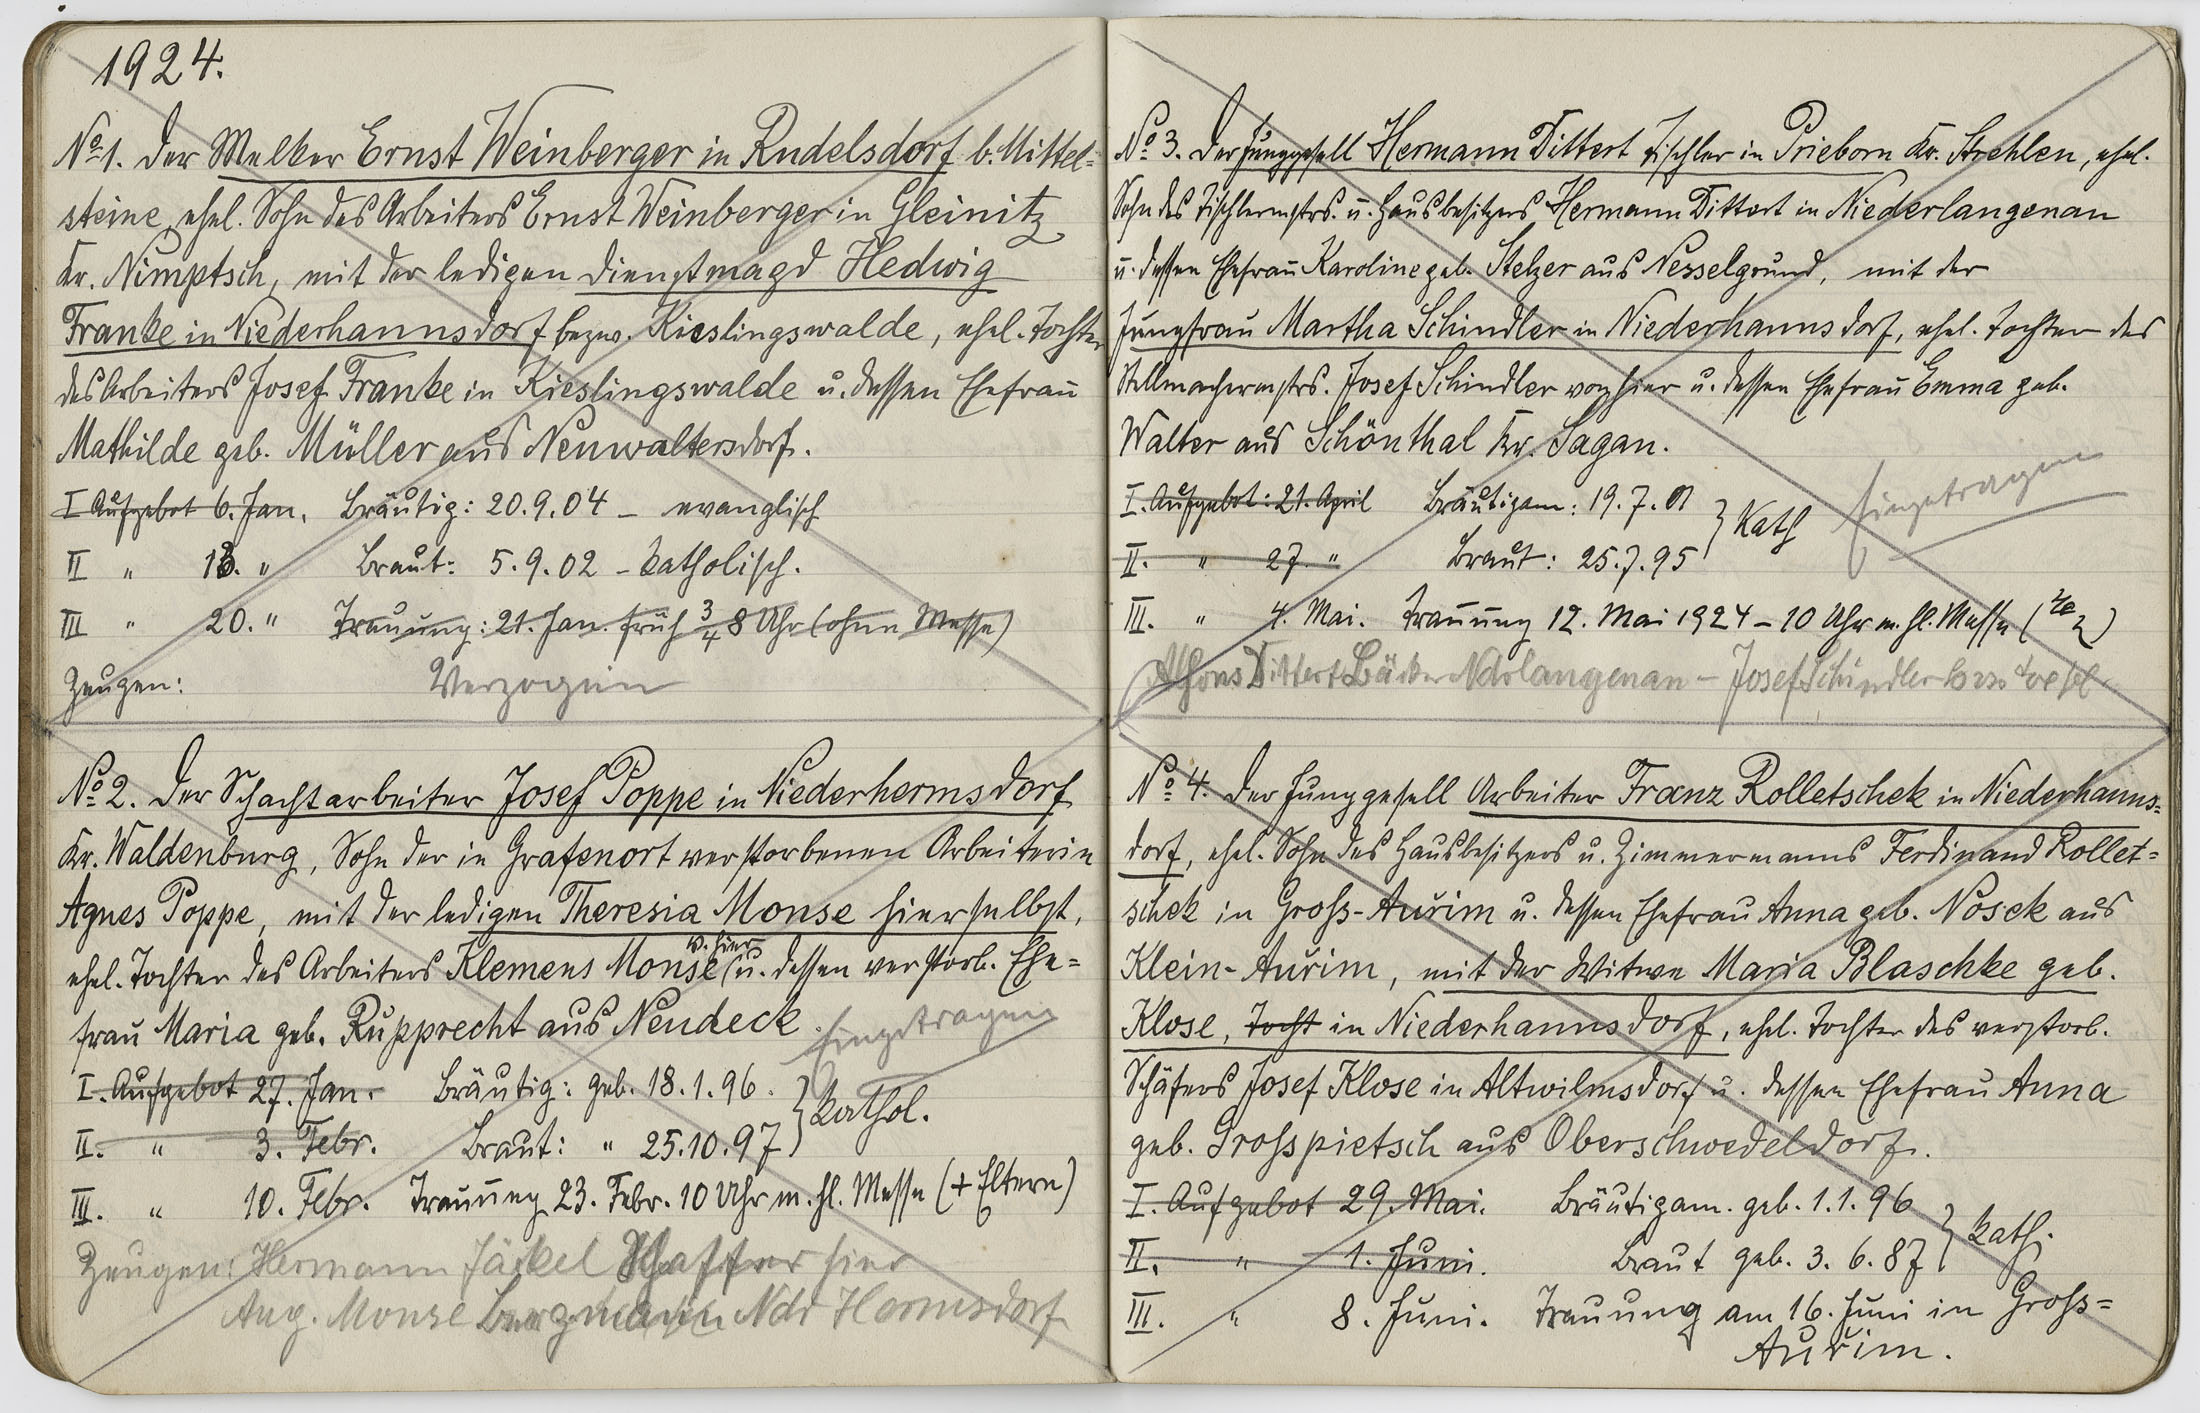 1924.
No 1. Der Melker Ernst Weinberger in Rudelsdorf b. Mittel=
steine, ehel. Sohn des Arbeiters Ernst Weinberger in Gleinitz
Kr. Nimptsch, mit der ledigen Dienstmagd Hedwig
Franke in Niederhannsdorf bezw. Kieslingswalde, ehel. Tochter
des Arbeiters Josef Franke in Kieslingswalde u. dessen Ehefrau
Mathilde geb. Müller aus Neuwaltersdorf.
I Aufgebot 6. Jan. Bräutig: 20.9.04 – evanglisch
II " 13. " Braut: 5.9.02 – katholisch.
III " 20. " Trauung: 21. Jan. früh 3/4 8 Uhr (ohne Messe)
Zeugen: Verzogen
No 2. Der Schachtarbeiter Josef Poppe in Niederhermsdorf
Kr. Waldenburg, Sohn der in Grafenort verstorbenen Arbeiterin
Agnes Poppe, mit der ledigen Theresia Monse hierselbst,
ehel. Tochter des Arbeiters Klemens Monse v. hier u. dessen verstorb. Ehe=
frau Maria geb. Rupprecht aus Neudeck. Eingetragen
I. Aufgebot 27. Jan. Bräutig: geb. 18.1.96. } kathol.
II. " 3. Febr. Braut: " 25.10.97
III. " 10. Febr. Trauung 23. Febr. 10 Uhr m. hl. Messe (+ Eltern)
Zeugen: Hermann Jäckel Schaffer hier
Aug. Monse Bergmann Ndr Hermsdorf
No 3. Der Junggesell Hermann Dittert Tischler in Prieborn Kr. Strehlen, ehel.
Sohn des Tischlermstrs. u. Hausbesitzers Hermann Dittert in Niederlangenau
u. dessen Ehefrau Karoline geb. Stelzer aus Nesselgrund, mit der
Jungfrau Martha Schindler in Niederhannsdorf, ehel. Tochter des
Stellmachermstrs. Josef Schindler von hier u. dessen Ehefrau Emma geb.
Walter aus Schönthal Kr. Sagan.
I. Aufgebot: 21. April Bräutigam: 19.7.01 } Kath Eingetragen
II. " 27 " Braut: 25.7.95
III. " 4. Mai. Trauung 12. Mai 1924 – 10 Uhr m. hl. Messe
Alfons Dittert Bäcker Ndrlangenau – Josef Schindler
No 4. Der Junggesell Arbeiter Franz Rolletschek in Niederhanns=
dorf, ehel. Sohn des Hausbesitzers u. Zimmermanns Ferdinand Rollet=
schek in Gross-Auřim u. dessen Ehefrau Anna geb. Nosek aus
Klein-Auřim, mit der Witwe Maria Blaschke geb.
Klose, Tocht in Niederhannsdorf, ehel. Tochter des verstorb.
Schäfers Josef Klose in Altwilmsdorf u. dessen Ehefrau Anna
geb. Grosspietsch aus Oberschwedeldorf.
I. Aufgebot 29. Mai. Bräutigam. geb. 1.1.96 } kath.
II. " 1. Juni. Braut geb. 3.6.87
III. " 8. Juni. Trauung am 16. Juni in Gross=
Auřim.